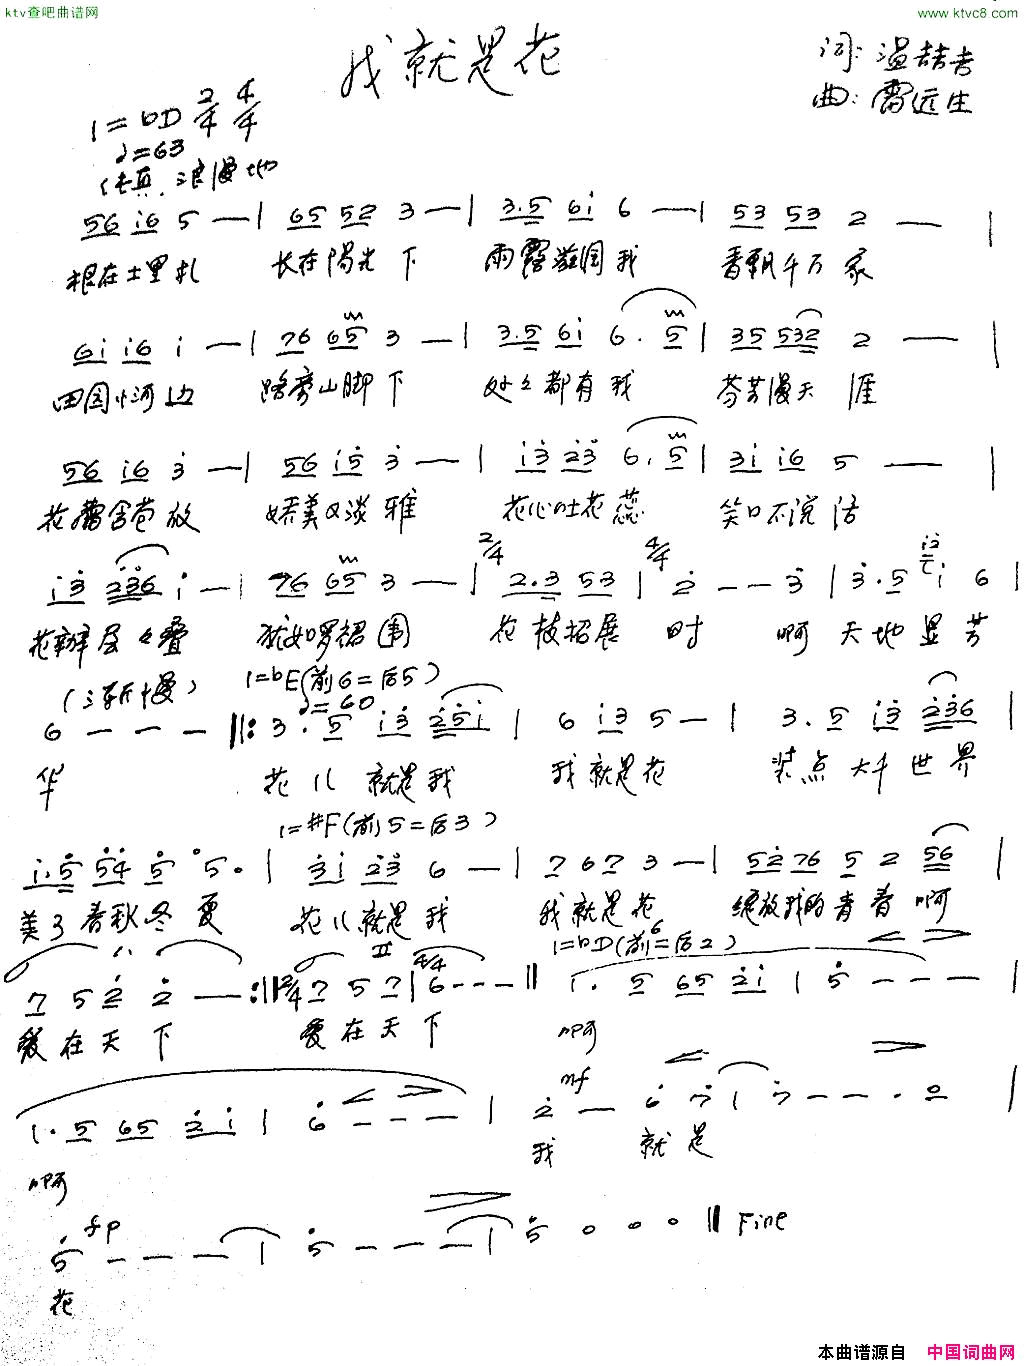 ktv查吧曲谱网
www.ktvc8.com
我就是花
词:温喆吉
曲:雷远生
1=bD 2/4 4/4
♩=63
传真.浪漫地
56 i6 5 — | 65 52 3 — | 3.5 6i 6 — | 53 53 2 — |
根在土里扎 长在阳光下 雨露滋润我 香飘千万家
6i i6 i — | 76 65 3 — | 3.5 6i 6. 5 | 35 532 2 — |
田园小河边 路旁山脚下 处々都有我 芬芳漫天涯
56 i6 3 — | 56 i5 3 — | i3 23 6. 5 | 3i i6 5 — |
花蕾含苞放 娇美又淡雅 花心吐花蕊 笑口不说话
i3 236 i — | 76 65 3 — | 2/4 2.3 53 | 4/4 2 - - 3 | 3.5 i 6 |
花瓣层々叠 犹如罗裙围 花枝招展时 啊 天地显芳
(渐慢) 1=bE(前6=后5)
♩=60
6 - - - ‖: 3. 5 i3 25i | 6 i3 5 — | 3. 5 i3 236 |
华 花儿就是我 我就是花 装点大千世界
1=#F(前5=后3)
i.5 54 5 5. | 3i 23 6 — | 7 67 3 — | 52 76 5 2 56 |
美了春秋冬夏 花儿就是我 我就是花 绽放我的青春啊
1=bD(前6=后2)
7 5 2 2 — :‖ 2/4 7 5 7 | 4/4 6 - - - ‖ 1. 5 65 2i | 5 - - - |
爱在天下 爱在天下 啊
mf
1. 5 65 2i | 6 - - - | 2 — 6 7 | 7 - - . 0 |
啊 我 就是
fp
5 - - - | 5 - - - | 5 0 0 0 ‖ Fine
花
本曲谱源自 中国词曲网